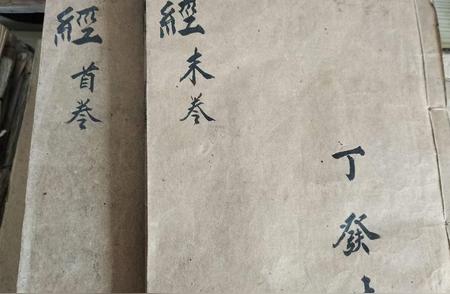 丁發
經末卷
經首卷